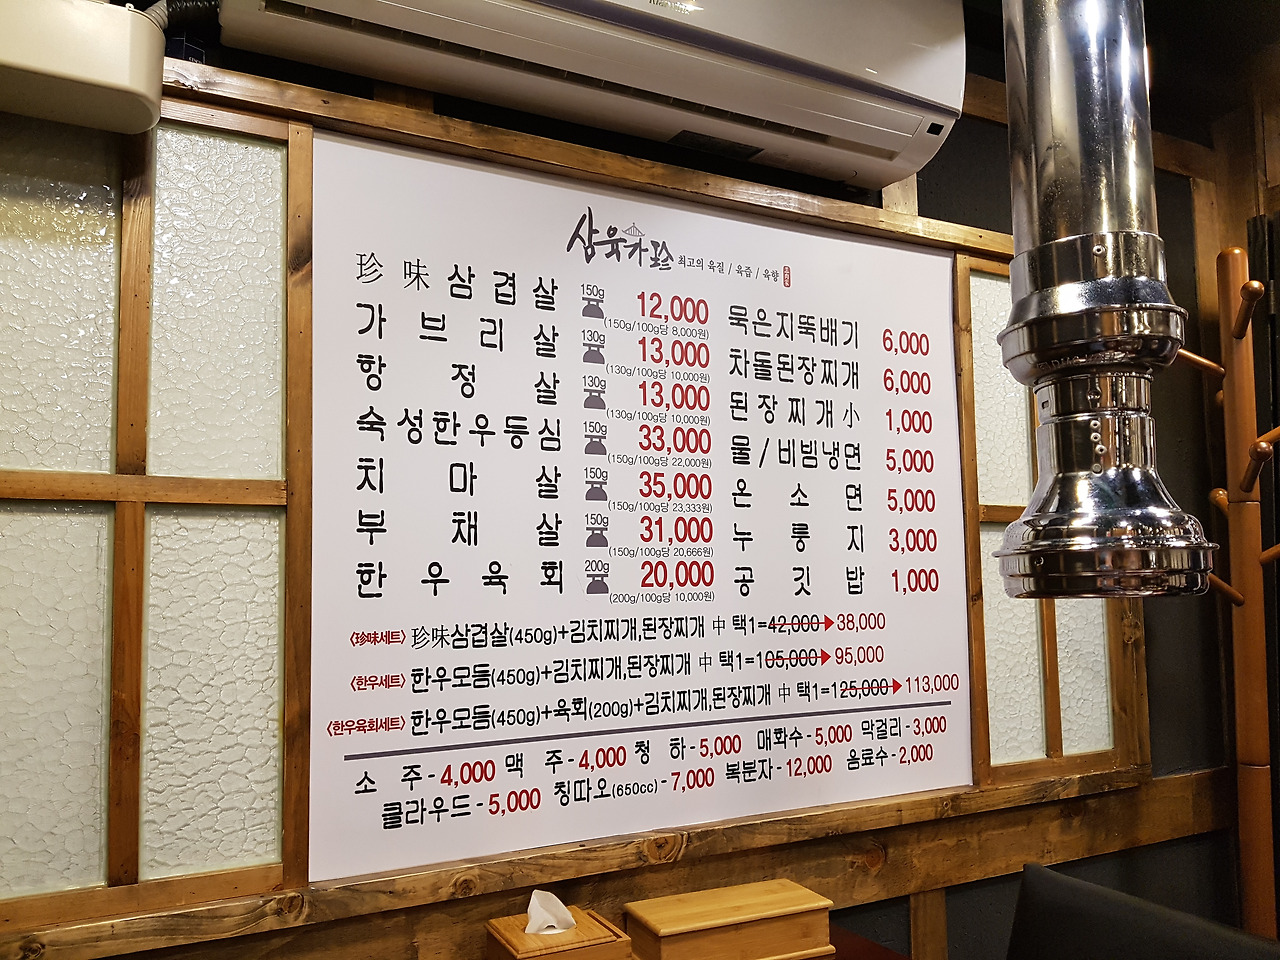 삼육가珍 최고의 육질 / 육즙 / 육향
珍味삼겹살 150g 12,000
(150g/100g당 8,000원)
가브리살 130g 13,000
(130g/100g당 10,000원)
항정살 130g 13,000
(130g/100g당 10,000원)
숙성한우등심 150g 33,000
(150g/100g당 22,000원)
치마살 150g 35,000
(150g/100g당 23,333원)
부채살 150g 31,000
(150g/100g당 20,666원)
한우육회 200g 20,000
(200g/100g당 10,000원)
묵은지뚝배기 6,000
차돌된장찌개 6,000
된장찌개小 1,000
물/비빔냉면 5,000
온소면 5,000
누룽지 3,000
공깃밥 1,000
<珍味세트> 珍味삼겹살(450g)+김치찌개,된장찌개 中 택1=42,000▶38,000
<한우세트> 한우모듬(450g)+김치찌개,된장찌개 中 택1=105,000▶95,000
<한우육회세트> 한우모듬(450g)+육회(200g)+김치찌개,된장찌개 中 택1=125,000▶113,000
소주-4,000 맥주-4,000 청하-5,000 매화수-5,000 막걸리-3,000
클라우드-5,000 칭따오(650cc)-7,000 복분자-12,000 음료수-2,000